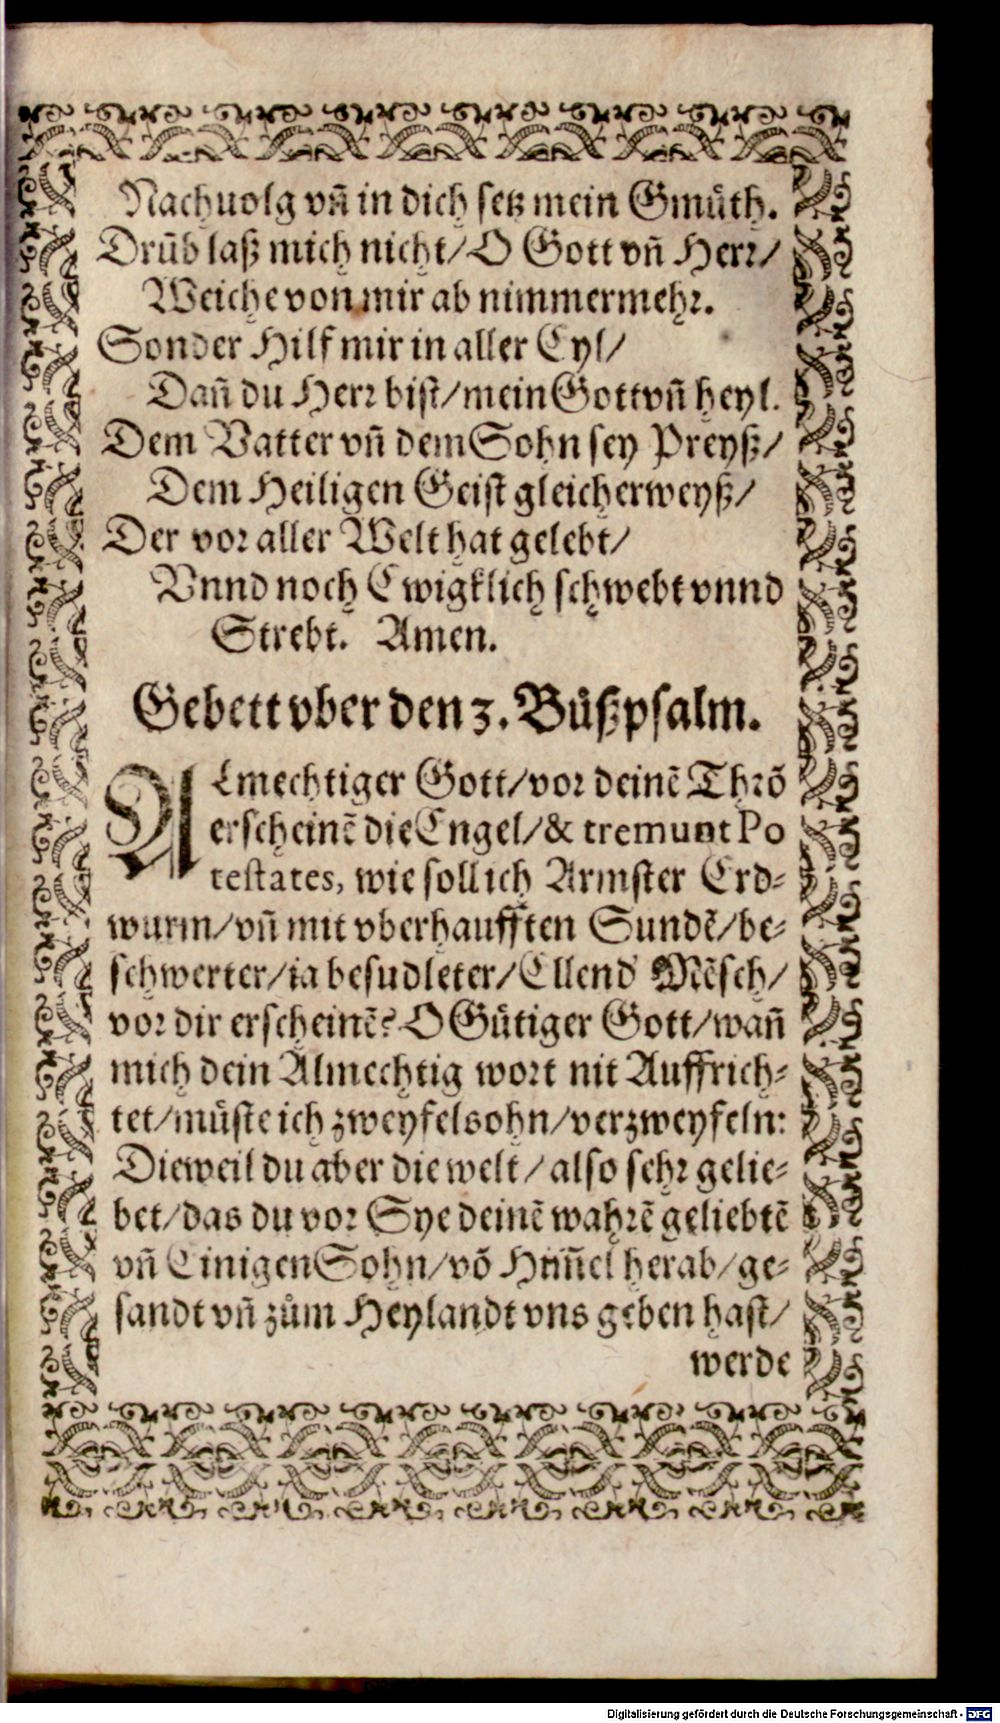 Nachuolg vñ in dich setz mein Gmüth.
Drūb laß mich nicht/ O Gott vñ Herr/
Weiche von mir ab nimmermehr.
Sonder Hilf mir in aller Eyl/
Dañ du Herr bist/ mein Gott vñ heyl.
Dem Vatter vñ dem Sohn sey Preyß/
Dem Heiligen Geist gleicherweyß/
Der vor aller Welt hat gelebt/
Vnnd noch Ewigklich schwebt vnnd
Strebt. Amen.
Gebett vber den 3. Büßpsalm.
ALmechtiger Gott/ vor deinē Thrō
erscheinē die Engel/ & tremunt Po
testates, wie soll ich Armster Erd-
wurm/ vñ mit vberhaufften Sundē/ be-
schwerter/ ia besudleter/ Ellend Mēsch/
vor dir erscheinē? O Gütiger Gott/ wañ
mich dein Almechtig wort nit Auffrich-
tet/ müste ich zweyfelsohn/ verzweyfeln:
Dieweil du aber die welt/ also sehr gelie-
bet/ das du vor Sye deinē wahrē geliebtē
vñ Einigen Sohn/ vō Him̃el herab/ ge-
sandt vñ zům Heylandt vns geben hast/
werde
Digitalisierung gefördert durch die Deutsche Forschungsgemeinschaft - DFG